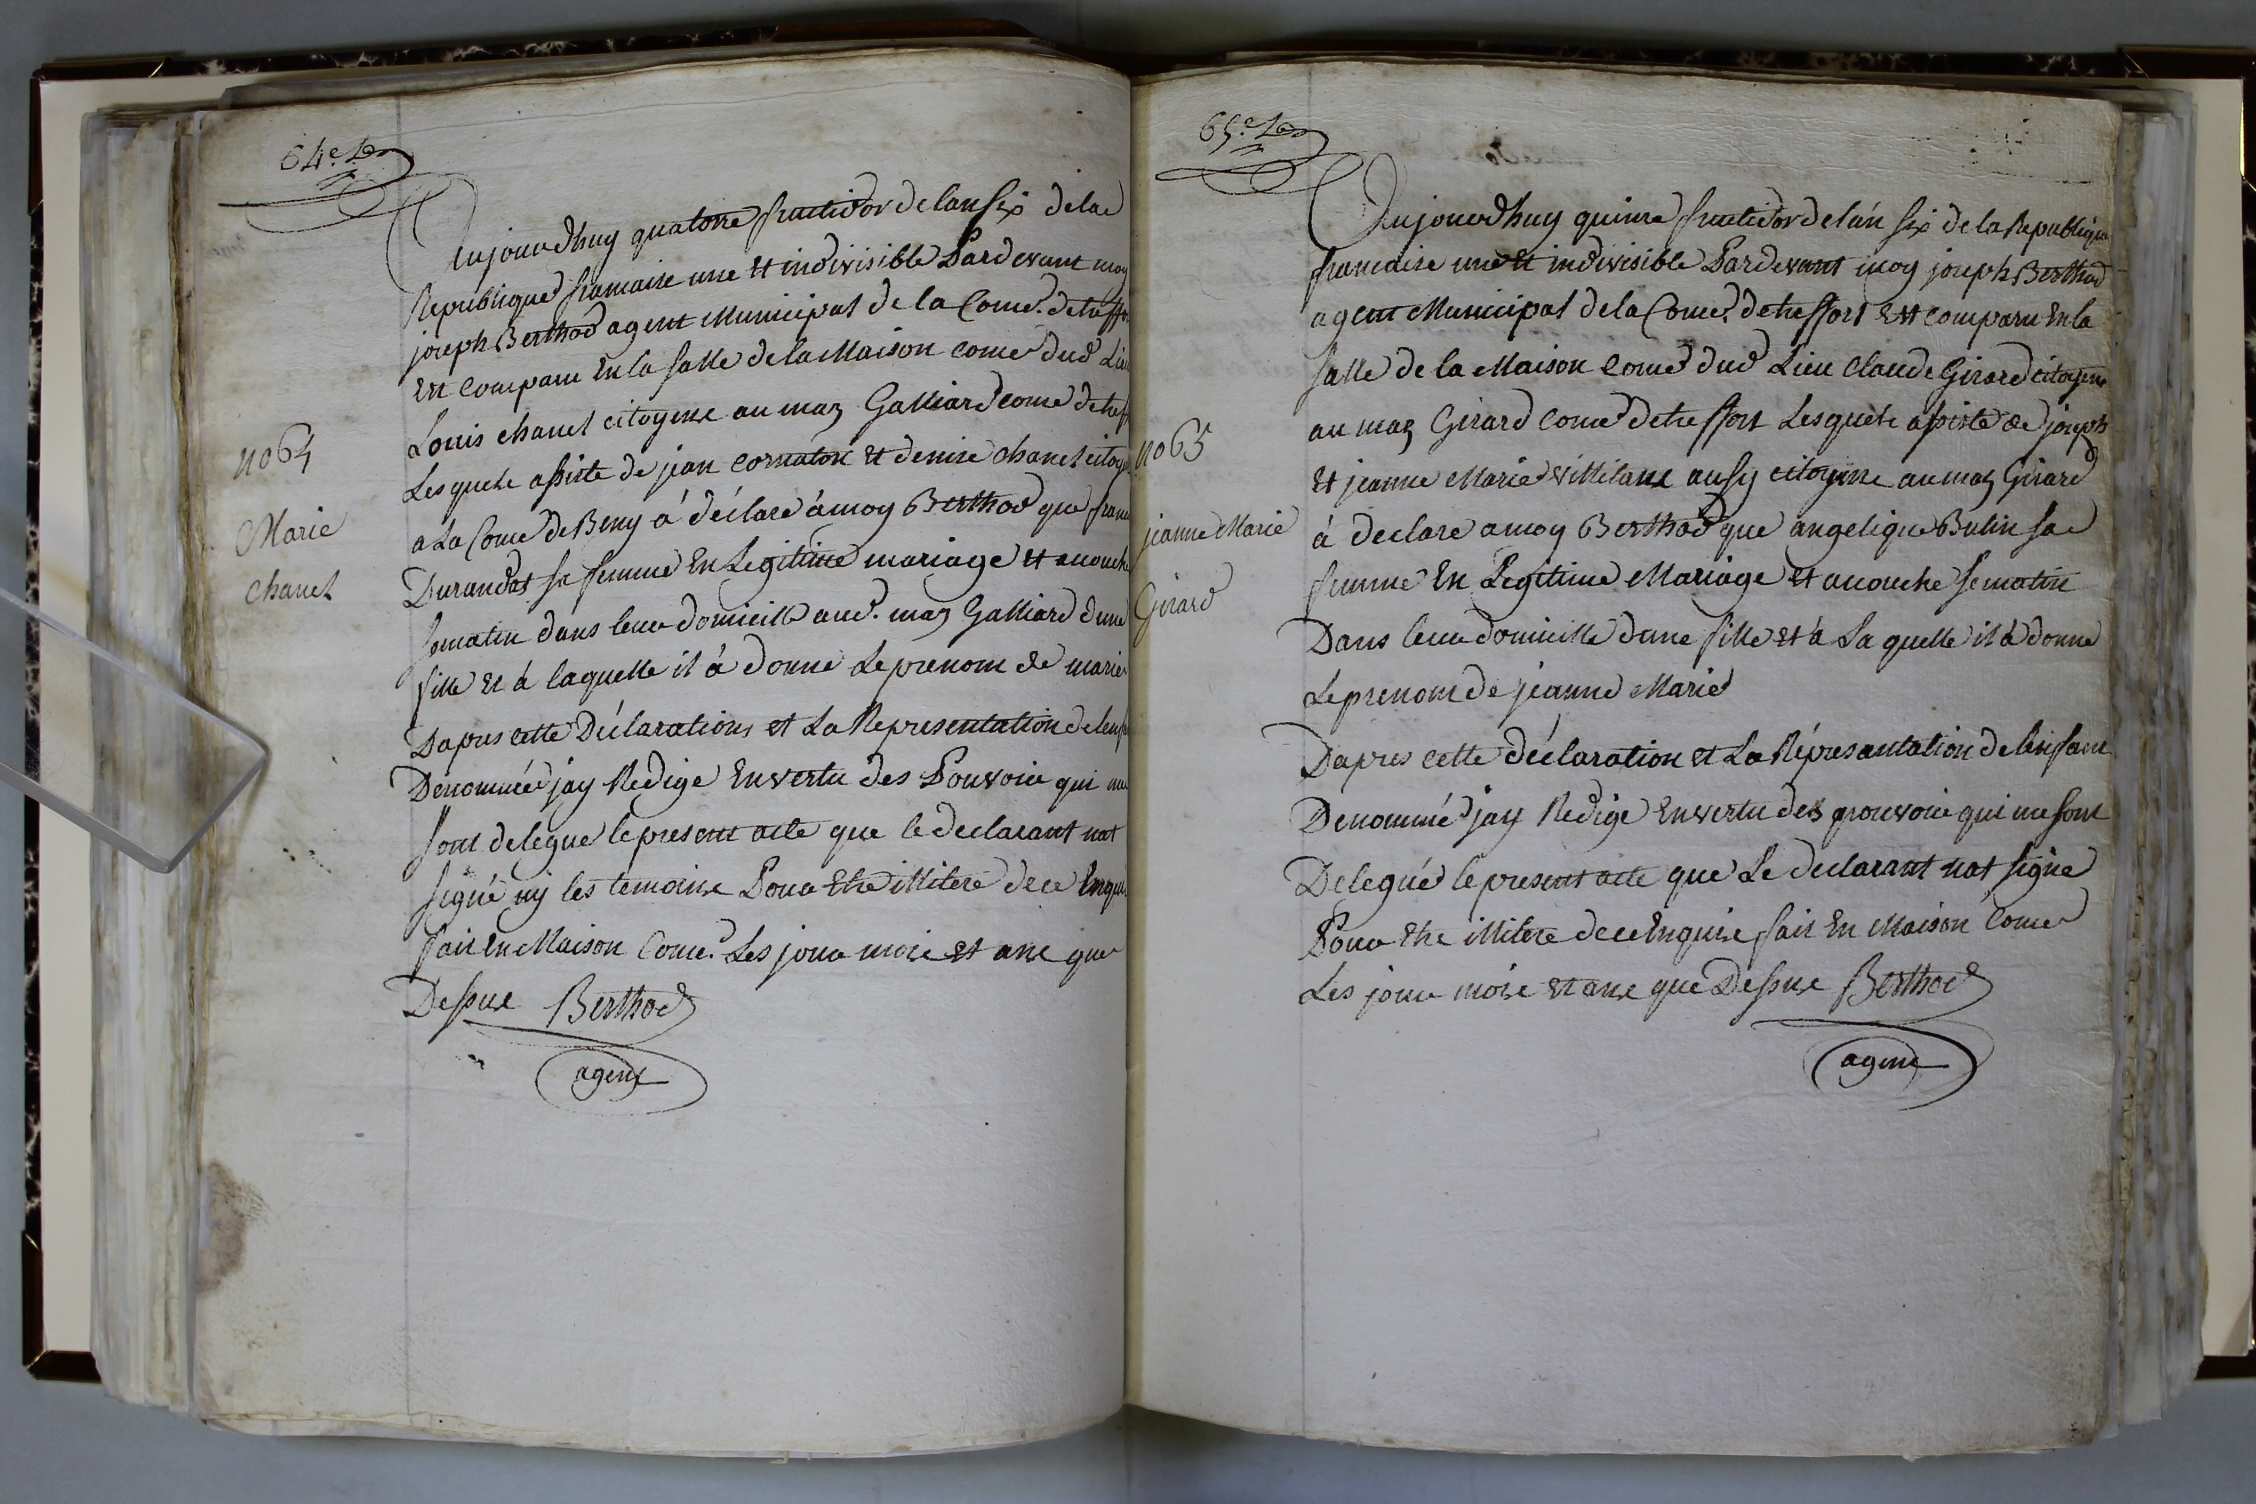 64e
Aujourdhuy quatorze fructidor de lan six de la
Republique francaise une et indivisible Pardevant moy
joseph Berthod agent Municipal de la Come. de treffo
Est comparu En la salle de la Maison come dud Lieu
Louis chanel citoyene au maz Galliard come de tref
Lesquele assiste de jean cornaton et denise chanel citoye
a La Come de Beny á déclaré á moy Berthod que franc
Durandat sa femme En Legitime mariage et acouche
sematin dans leur domicille aud. maz Galliard dune
fille et á laquelle il á donné Le prenom de marie
Dapres cette Déclarations et La Representation de lenf
Dénommée jay Redige En vertu des Pouvoir qui me
sont délegué le present acte que le declarant nat
signé ny les temoine Pour Etre illiteré de ce Enqui
fait En Maison Come. Les jour mois et ans que
Dessus Berthod
agent
no 64
Marie
chanel
65.e
Aujourdhuy quinze fructidor de lán six de la Republique
francaise une et indivisible Pardevant moy joseph Berthod
agent Municipal de la Come. de treffort Est comparu En la
salle de la Maison Come dud Lieu Claude Girard citoyene
au maz Girard Come de treffort Lesquele assiste de joseph
et jeanne Marie Villilane ausy citoyene au maz Girard
á declare a moy Berthod que angelique Bulin sa
femme En Legitime Mariage et acouche se matin
Dans leur domicille dune fille et á La quelle il á donne
Le prenom de jeanne Marie
Dapres cette déclaration et La Réprésantation de lenfant
Denommé jay Redige En vertu des pouvoir qui me sont
Delegué le present acte que Le declarant nat signe
Pour Etre illiteré de ce Enquise fait En Maison Come
Les jour mois et ans que Dessus Berthod
agent
no 65
jeanne Marie
Girard